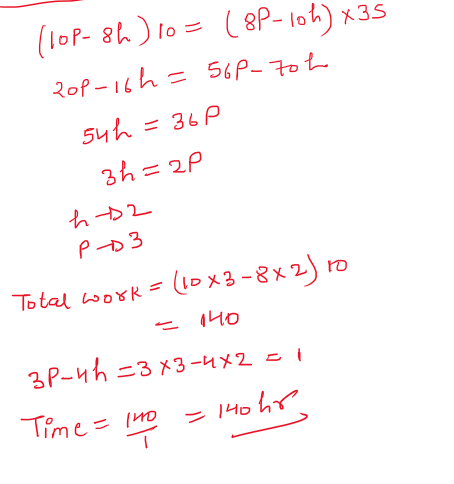 (10P-8h)10 = (8P-10h)×35
20P-16h = 56P-70h
54h = 36P
3h = 2P
h→2
P→3
Total work = (10×3-8×2)10
= 140
3P-4h = 3×3-4×2 = 1
Time = 140/1 = 140hr